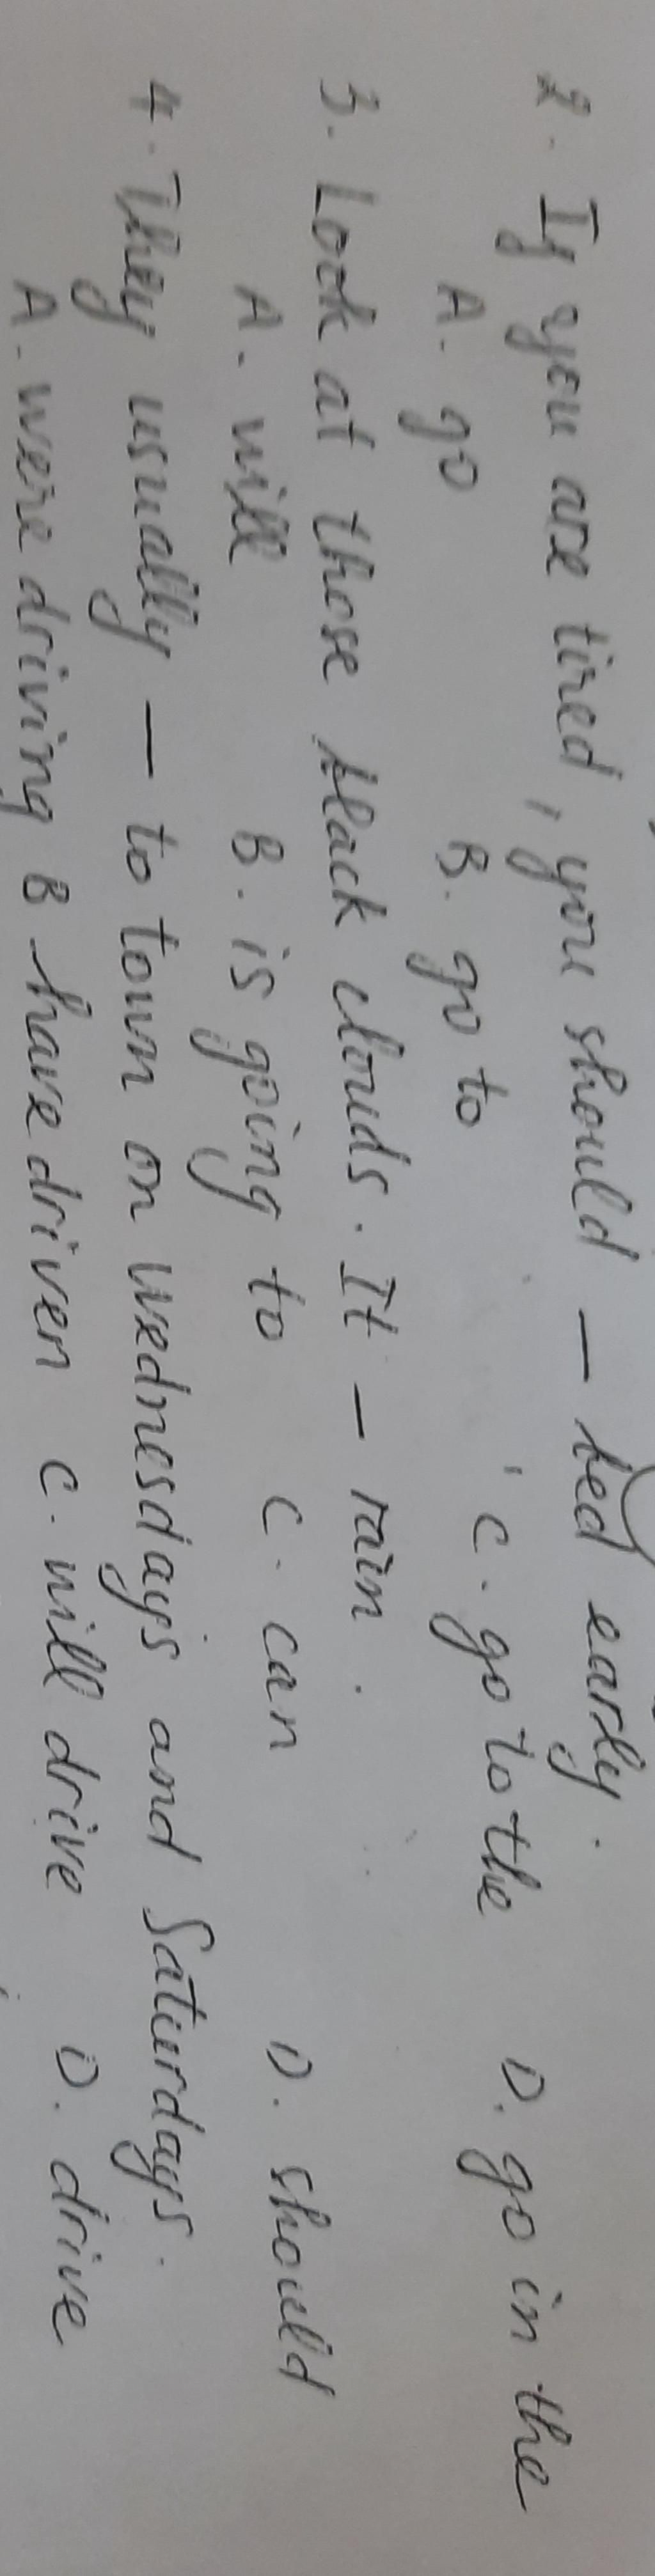 2. If you are tired, you should — bed early.
A. go B. go to C. go to the D. go in the
3. Look at those black clouds. It — rain.
A. will B. is going to C. can D. should
4. They usually — to town on wednesdays and Saturdays.
A. were driving B have driven C. will drive D. drive